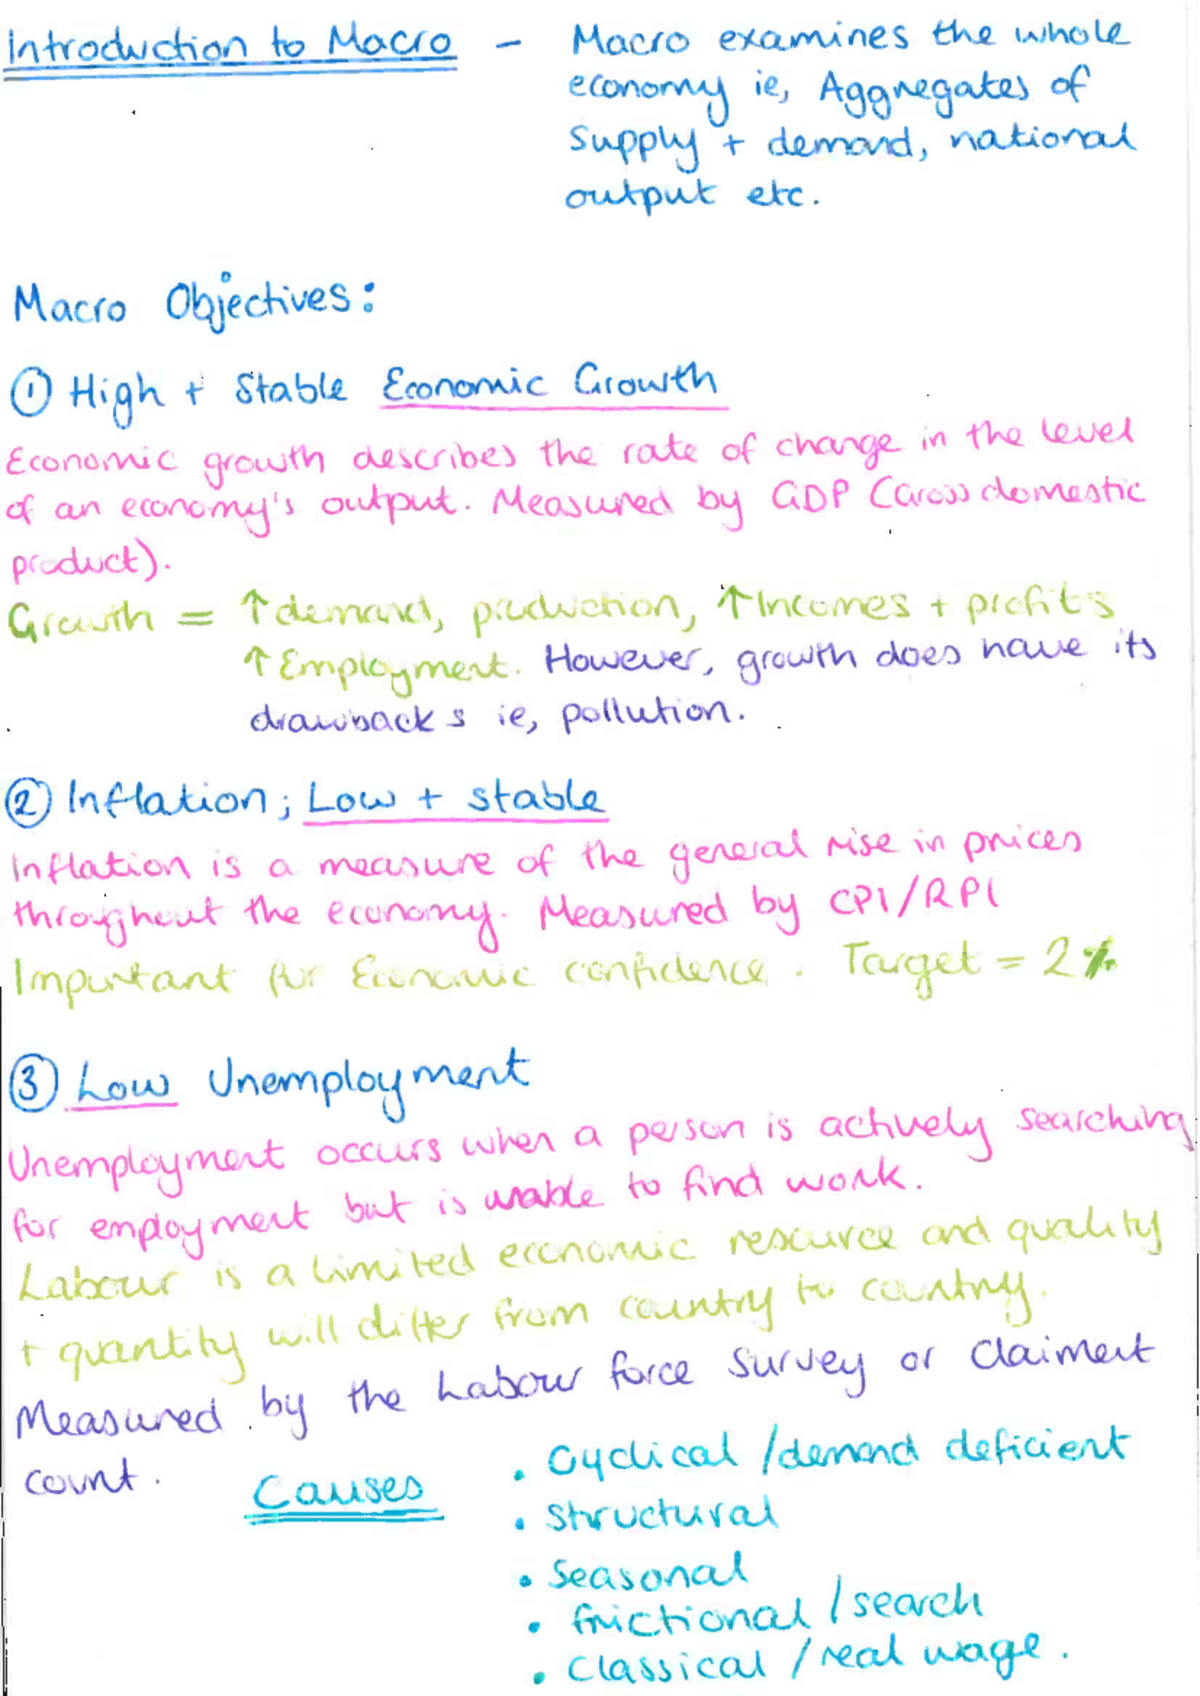 Introduction to Macro - Macro examines the whole
economy ie, Aggregates of
supply + demand, national
output etc.
Macro Objectives:
① High + Stable Economic Growth
Economic growth describes the rate of change in the level
of an economy's output. Measured by GDP (Gross domestic
product).
Growth = ↑ demand, production, ↑ Incomes + profits
↑ Employment. However, growth does have its
drawbacks ie, pollution.
② Inflation; Low + stable
Inflation is a measure of the general rise in prices
throughout the economy. Measured by CPI/RPI
Important for Economic confidence. Target = 2%
③ Low Unemployment
Unemployment occurs when a person is actively searching
for employment but is unable to find work.
Labour is a limited economic resource and quality
+ quantity will differ from country to country.
Measured by the Labour force survey or Claiment
count.
Causes
• Cyclical / demand deficient
• Structural
• Seasonal
• frictional / search
• Classical / real wage.